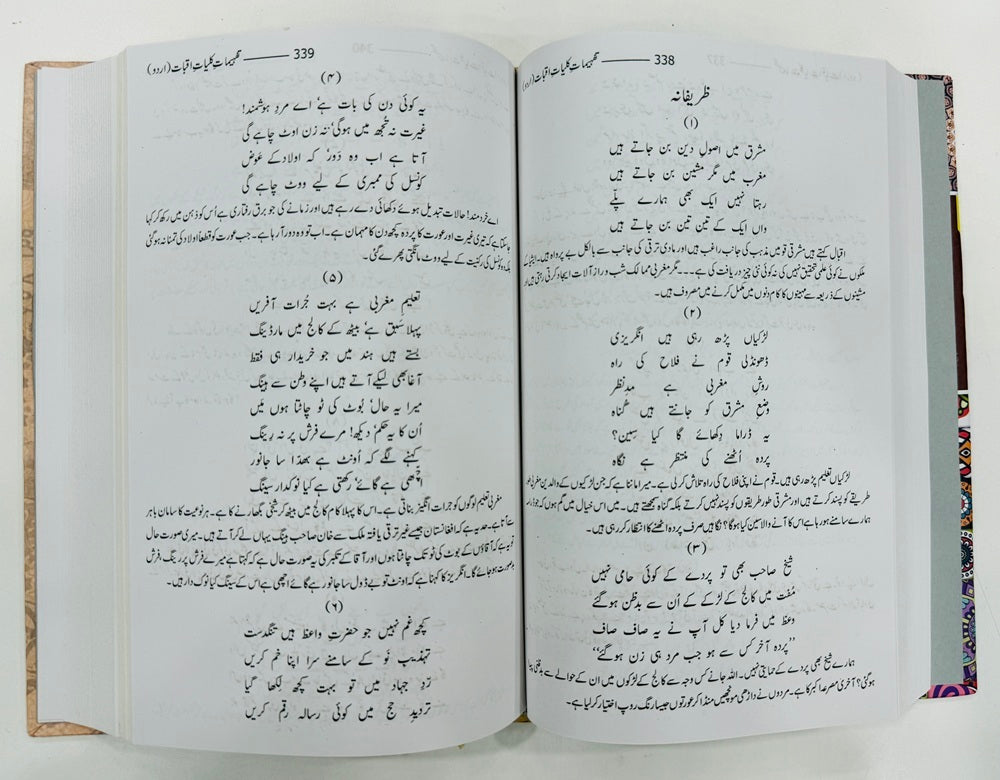 338 ——— تفہیمات کلیاتِ اقبال (اردو)
ظریفانہ
(۱)
مشرق میں اصولِ دین بن جاتے ہیں
مغرب میں مگر مشین بن جاتے ہیں
رہتا نہیں ایک بھی ہمارے پلّے
واں ایک کے تین تین بن جاتے ہیں
اقبال کہتے ہیں مشرقی قومیں مذہب کی جانب راغب ہیں اور مادی ترقی کی جانب سے بالکل بے پرواہ ہیں۔
ملکوں نے کوئی علمی تحقیق نہیں کی نہ کوئی نئی چیز دریافت کی ہے۔۔۔ مگر مغربی ممالک شب و روز آلات ایجاد کرتی رہتی ہیں
مشینوں کے ذریعہ سے مہینوں کا کام دنوں میں مکمل کرنے میں مصروف ہیں۔
(۲)
لڑکیاں پڑھ رہی ہیں انگریزی
ڈھونڈلی قوم نے فلاح کی راہ
روشِ مغربی ہے مدِنظر
وضعِ مشرق کو جانتے ہیں گناہ
یہ ڈراما دکھائے گا کیا سین؟
پردہ اُٹھنے کی منتظر ہے نگاہ
لڑکیاں تعلیم پڑھ رہی ہیں۔ قوم نے اپنی فلاح کی راہ تلاش کر لی ہے۔ میرا ماننا ہے کہ جن لڑکیوں کے والدین مغربی
طریقے کو پسند کرتے ہیں اور مشرقی طور طریقوں کو پسند نہیں کرتے بلکہ گناہ سمجھتے ہیں۔ میں اس خیال میں گم ہوں کہ
ہمارے سامنے ہو رہا ہے اس کا آنے والا سین کیا ہوگا؟ نگاہیں صرف پردہ اٹھنے کا انتظار کر رہی ہیں۔
(۳)
شیخ صاحب بھی تو پردے کے کوئی حامی نہیں
مُفت میں کالج کے لڑکے اُن سے بدظن ہوگئے
وعظ میں فرما دیا کل آپ نے یہ صاف صاف
’’پردہ آخر کس سے ہو جب مرد ہی زن ہوگئے‘‘
ہمارے شیخ بھی پردے کے حمایتی نہیں۔ اللہ جانے کس وجہ سے کالج کے لڑکوں میں ان کے حوالے سے بدظنی پیدا
ہوگئی؟ آخری مصرعہ اکبر کا ہے۔ مردوں نے داڑھی مونچھیں منڈا کر عورتوں جیسا رنگ روپ اختیار کر لیا ہے۔
339 ——— تفہیمات کلیاتِ اقبال (اردو)
(۴)
یہ کوئی دن کی بات ہے، اے مردِ ہوشمند!
غیرت نہ تُجھ میں ہوگی، نہ زن اوٹ چاہے گی
آتا ہے اب وہ دَور کہ اولاد کے عوَض
کونسل کی ممبری کے لیے ووٹ چاہے گی
اے خردمند! حالات تبدیل ہوئے دکھائی دے رہے ہیں اور زمانے کی جو برق رفتاری ہے اُس کو ذہن میں رکھ کر کہا
جا سکتا ہے کہ تیری غیرت اور عورت کا پردہ کچھ دن کا مہمان ہے۔ اب تو وہ دور آ رہا ہے۔ جب عورت کو قطعاً اولاد کی تمنا نہ ہوگی
بلکہ وہ کونسل کی رکنیت کے لیے ووٹ مانگتی پھرے گی۔
(۵)
تعلیمِ مغربی ہے بہت جُرات آفریں
پہلا سَبق ہے، بیٹھ کے کالج میں مار ڈینگ
بستے ہیں ہند میں جو خریدار ہی فقط
آغا بھی لیکے آتے ہیں اپنے وطن سے ہینگ
میرا یہ حال، بُوٹ کی ٹو چاٹتا ہوں میں
اُن کا یہ حکم، دیکھ! مرے فرش پر نہ رینگ
کہنے لگے کہ اُونٹ ہے بھدّا سا جانور
اچّھی ہے گائے، رکھتی ہے کیا نوکدار سینگ
مغربی تعلیم لوگوں کو جرات انگیز بناتی ہے۔ اس کا پہلا کام کالج میں بیٹھ کر شیخی بگھارنے کا ہے۔ ہر نوعیت کا سامان باہر
سے آتا ہے۔ حد یہ ہے کہ افغانستان جیسے غیر ترقی یافتہ ملک سے خان صاحب ہینگ یہاں لے کر آتے ہیں۔ میری صورت حال
تو یہ ہے کہ آقاؤں کے بوٹ کی ٹو تک چاٹتا ہوں اور آقا کے تکبر کی یہ صورت حال ہے کہ کہتا ہے میرے فرش پر رینگ فرش
بدصورت ہو جائے گا۔ انگریز کا کہنا ہے کہ اونٹ تو بے ڈول سا جانور ہے گائے اچھی ہے اس کے سینگ کیا نوک دار ہیں۔
(۶)
کچھ غم نہیں جو حضرتِ واعظ ہیں تنگدست
تہذیبِ نَو کے سامنے سر اپنا خم کریں
ردِّ جہاد میں تو بہت کچھ لکھا گیا
تردیدِ حج میں کوئی رسالہ رقم کریں